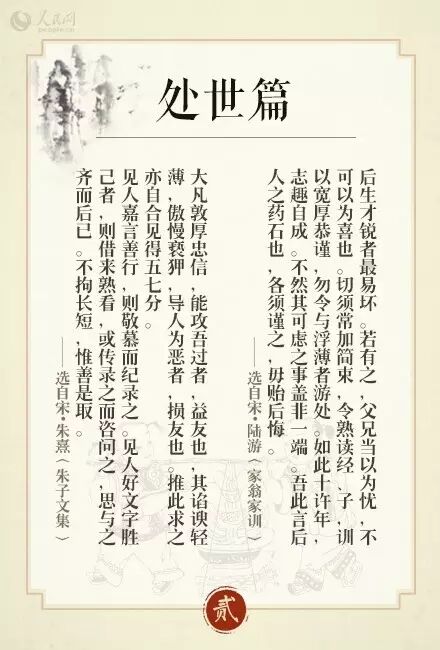 人民网
people.cn
处世篇
后生才锐者最易坏。若有之，父兄当以为忧，不
可以为喜也。切须常加简束，令熟读经、子，训
以宽厚恭谨，勿令与浮薄者游处。如此十许年，
志趣自成。不然其可虑之事盖非一端。吾此言后
人之药石也，各须谨之，毋贻后悔。
——选自宋·陆游（家翁家训）
大凡敦厚忠信，能攻吾过者，益友也，其谄谀轻
薄，傲慢亵狎，导人为恶者，损友也。推此求之
亦自合见得五七分。
见人嘉言善行，则敬慕而纪录之。见人好文字胜
己者，则借来熟看，或传录之而咨问之，思与之
齐而后已。不拘长短，惟善是取。
——选自宋·朱熹（朱子文集）
贰